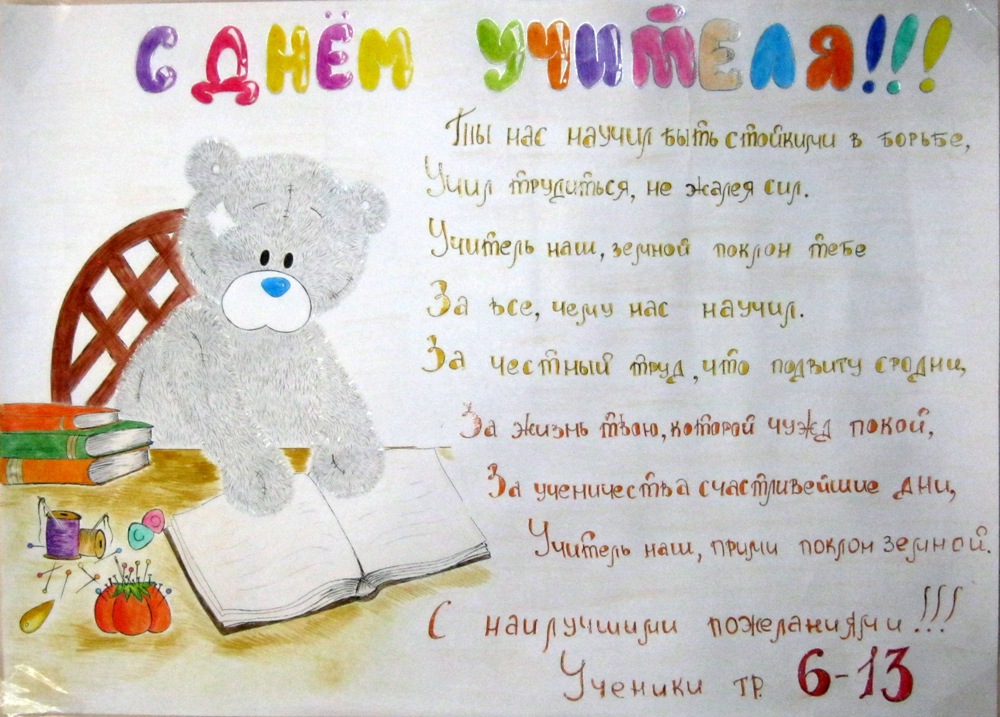 С ДНЁМ УЧИТЕЛЯ!!!
Ты нас научил быть стойкими в борьбе,
Учил трудиться, не жалея сил.
Учитель наш, земной поклон тебе
За все, чему нас научил.
За честный труд, что подвигу сродни,
За жизнь твою, которой чужд покой,
За ученичества счастливейшие дни,
Учитель наш, прими поклон земной.
С наилучшими пожеланиями!!!
Ученики гр. 6-13